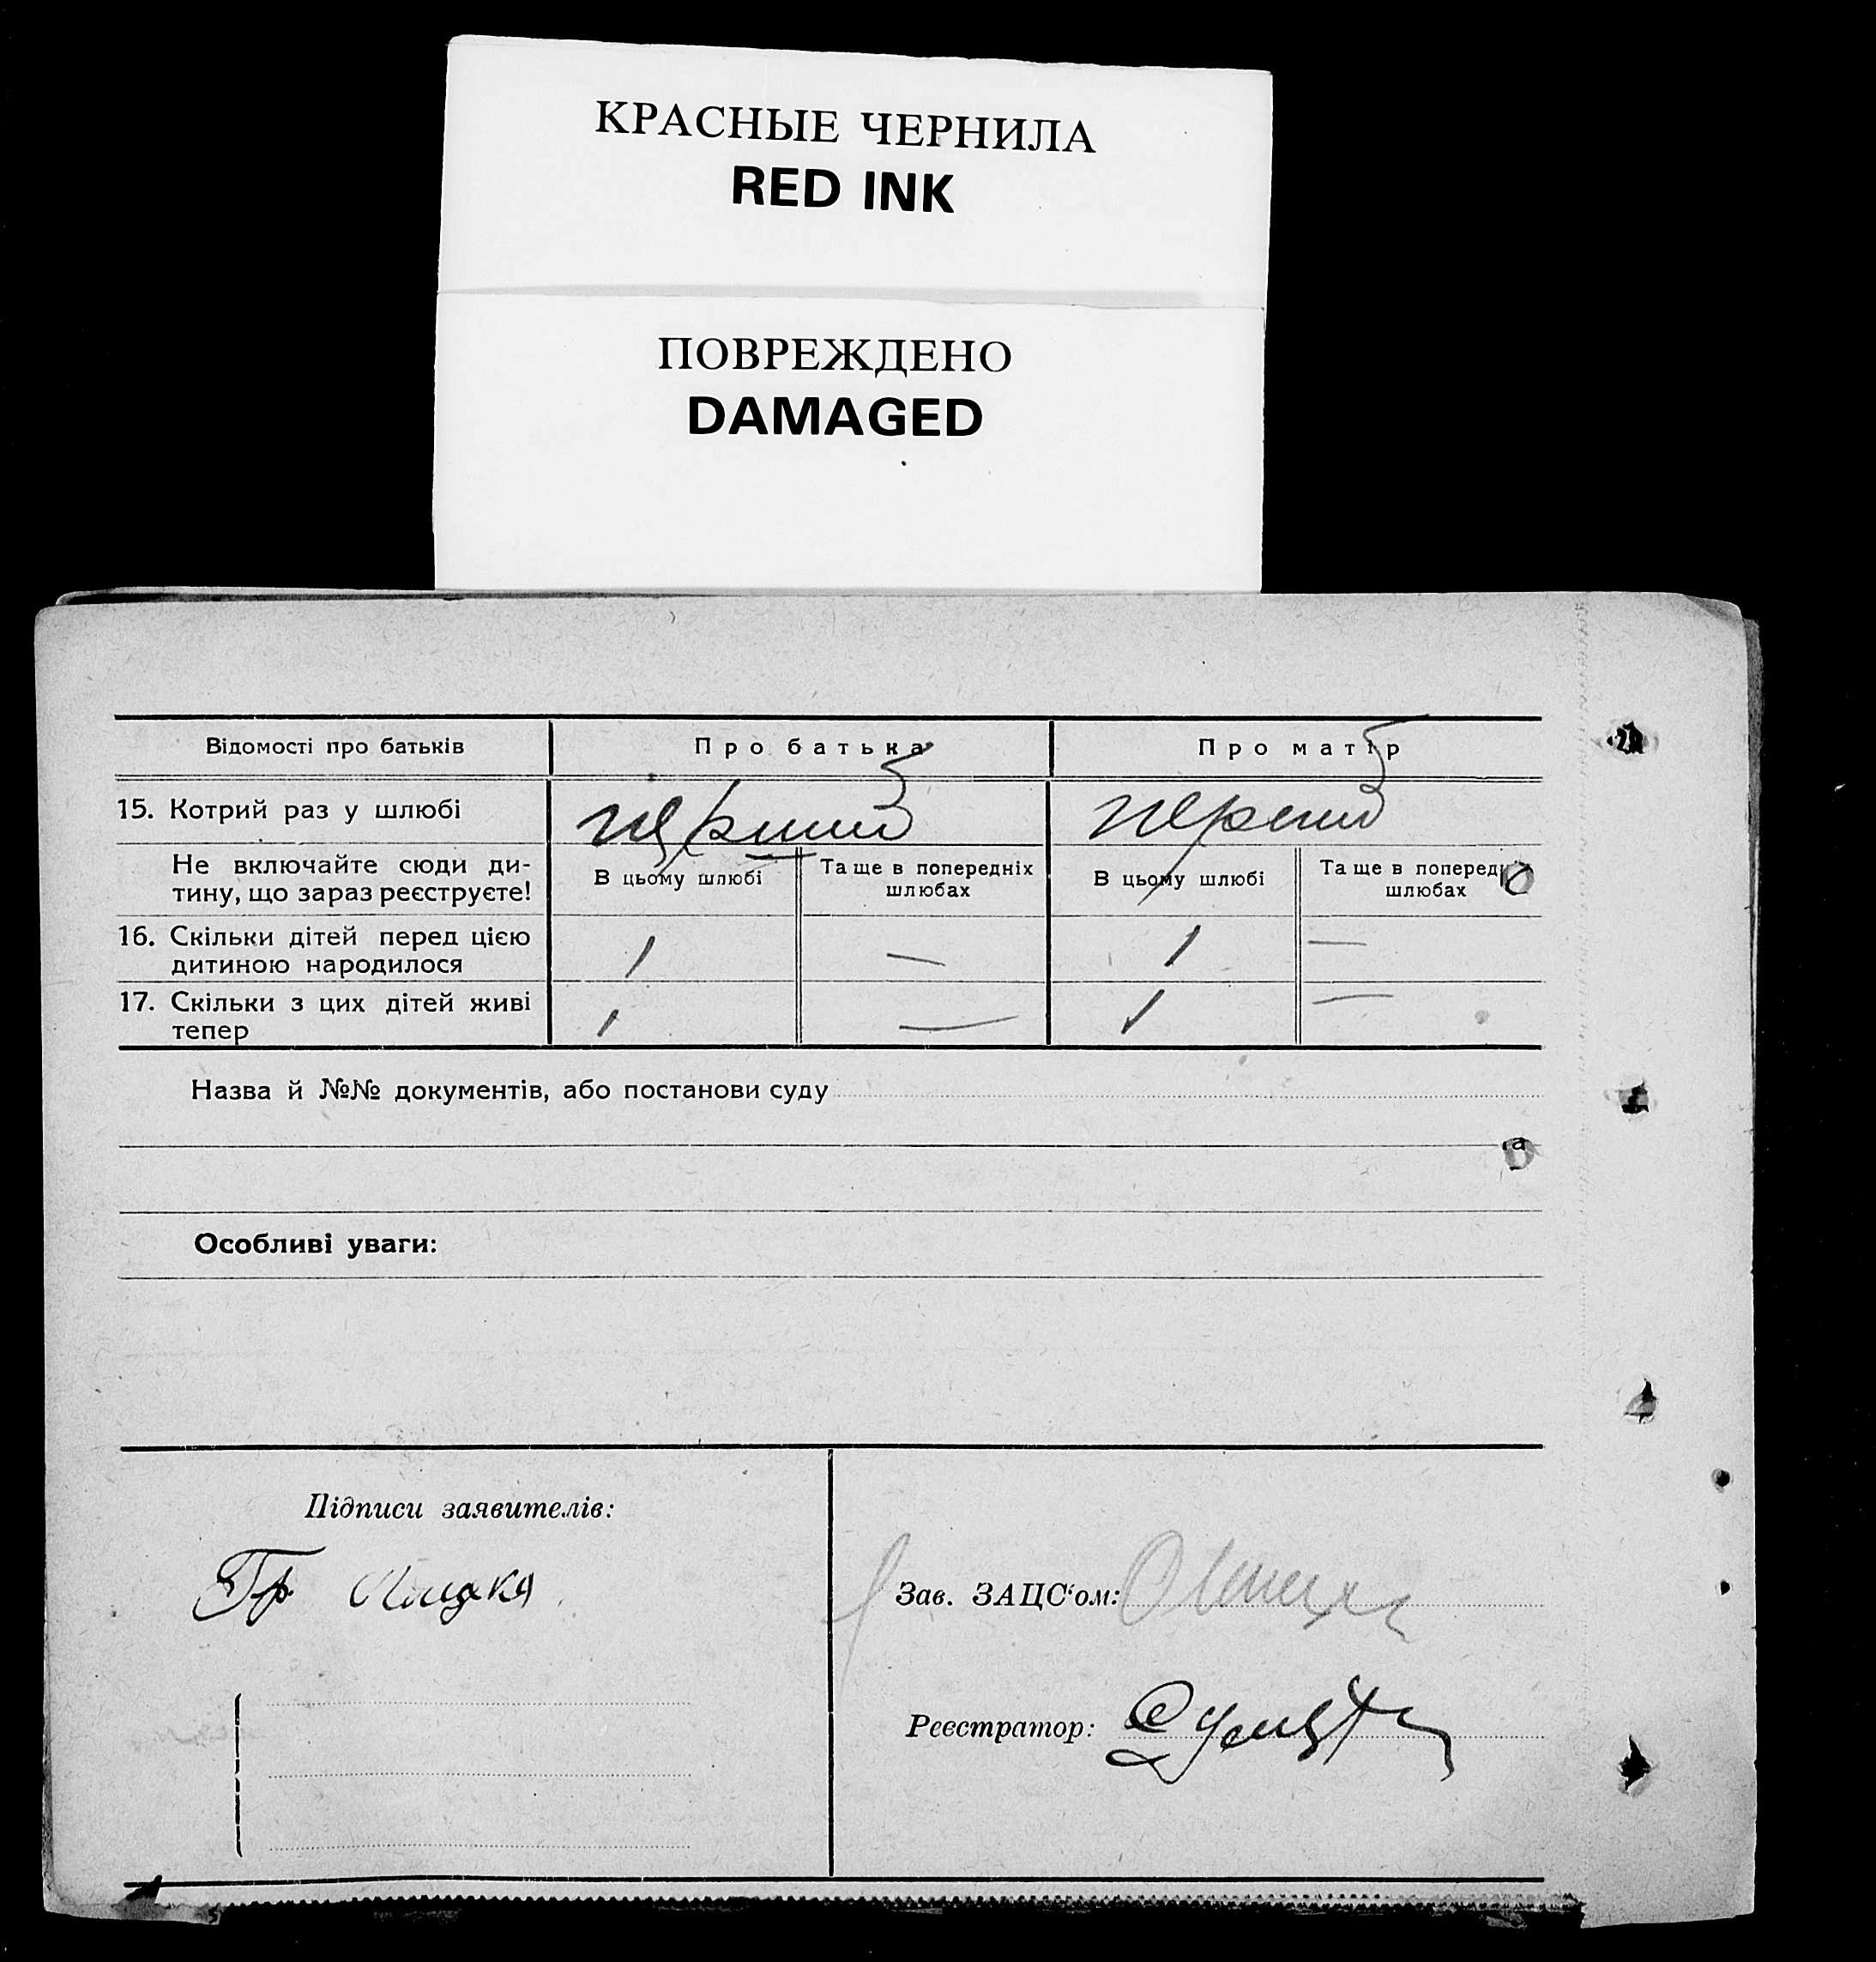 КРАСНЫЕ ЧЕРНИЛА
RED INK
ПОВРЕЖДЕНО
DAMAGED
Відомості про батьків Про батька Про матір
15. Котрий раз у шлюбі перший перший
Не включайте сюди ди-
тину, що зараз реєструєте!
В цьому шлюбі
Та ще в попередніх
шлюбах
В цьому шлюбі
Та ще в поперед
шлюбах
16. Скільки дітей перед цією
дитиною народилося
1 — 1 —
17. Скільки з цих дітей живі
тепер
1 — 1 —
Назва й №№ документів, або постанови суду
Особливі уваги:
Підписи заявителів:
Гр
Зав. ЗАЦС‘ом:
Реєстратор: